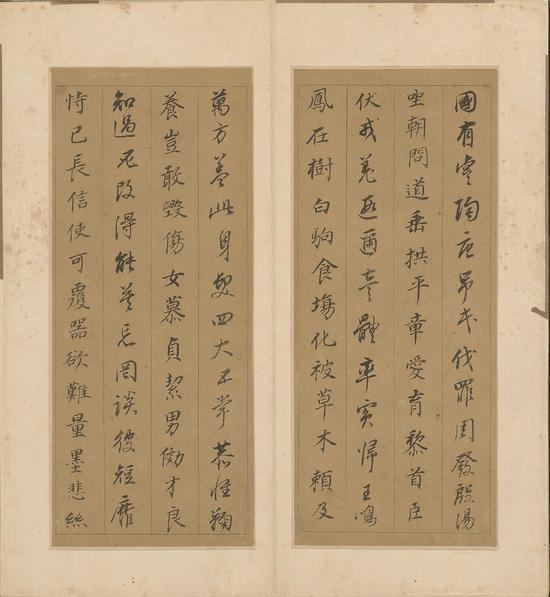 國有虞陶唐弔民伐罪周發殷湯
坐朝問道垂拱平章愛育黎首臣
伏戎羌遐邇壹體率賓歸王鳴
鳳在樹白駒食場化被草木賴及
萬方蓋此身髮四大五常恭惟鞠
養豈敢毀傷女慕貞絜男効才良
知過必改得能莫忘罔談彼短靡
恃己長信使可覆器欲難量墨悲絲